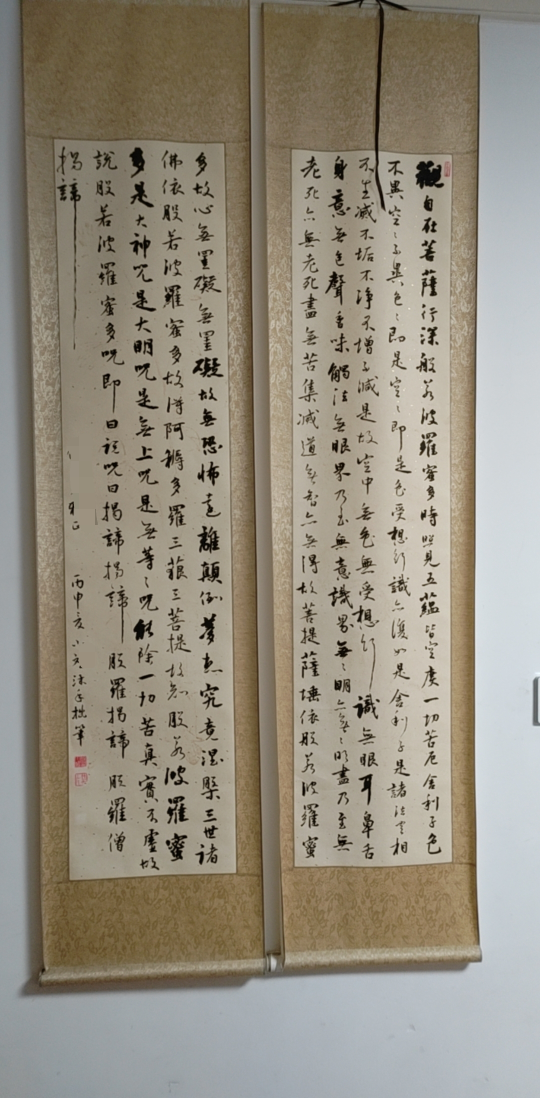 觀自在菩薩行深般若波羅蜜多時照見五蘊皆空度一切苦厄舍利子色
不異空空不異色色即是空空即是色受想行識亦復如是舍利子是諸法空相
不生滅不垢不淨不增不減是故空中無色無受想行識無眼耳鼻舌
身意無色聲香味觸法無眼界乃至無意識界無無明亦無無明盡乃至無
老死亦無老死盡無苦集滅道無智亦無得故菩提薩埵依般若波羅蜜
多故心無罣礙無罣礙故無恐怖遠離顛倒夢想究竟涅槃三世諸
佛依般若波羅蜜多故得阿耨多羅三藐三菩提故知般若波羅蜜
多是大神咒是大明咒是無上咒是無等等咒能除一切苦真實不虛故
說般若波羅蜜多咒即曰說咒曰揭諦揭諦般羅揭諦般羅僧
揭諦
丙申
拙筆